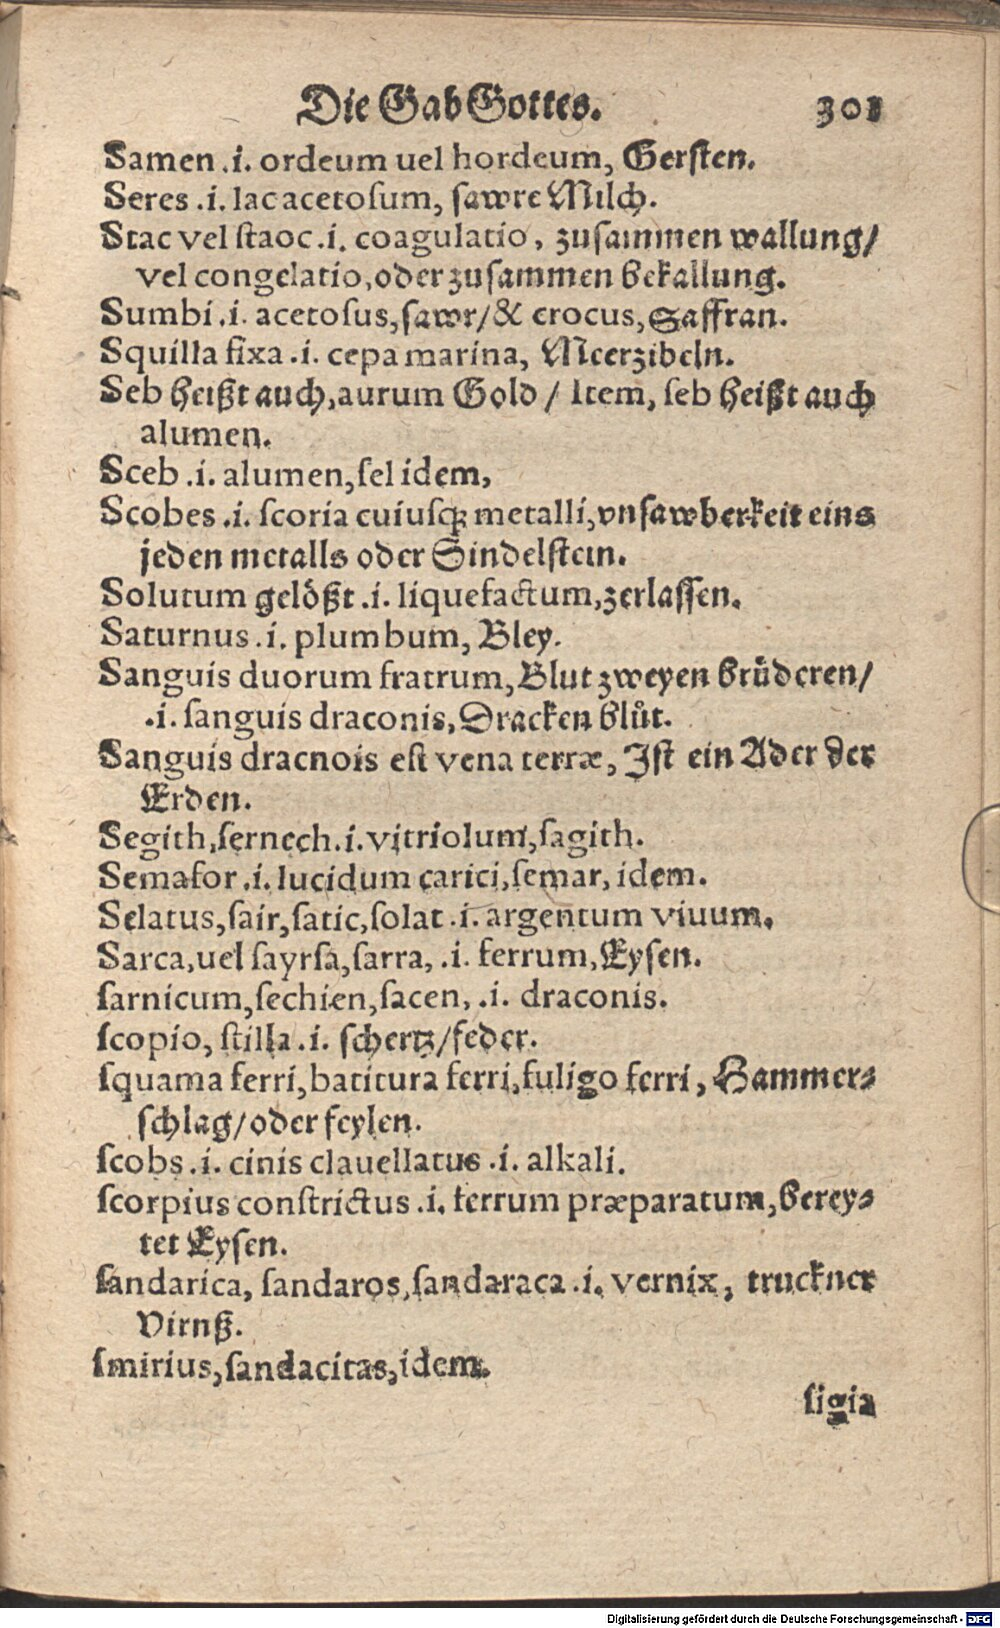 Die Gab Gottes. 301
Samen .i. ordeum uel hordeum, Gersten.
Seres .i. lac acetoſum, ſawre Milch.
Stac vel ſtaoc .i. coagulatio, zuſammen wallung/
vel congelatio, oder zuſammen bekallung.
Sumbi .i. acetoſus, ſawr/ & crocus, Saffran.
Squilla fixa .i. cepa marina, Meerzibeln.
Seb heißt auch, aurum Gold / Item, ſeb heißt auch
alumen.
Sceb .i. alumen, ſel idem,
Scobes .i. ſcoria cuiuſq; metalli, vnſawberkeit eins
jeden metalls oder Sindelſtein.
Solutum gelößt .i. liquefactum, zerlaſſen.
Saturnus .i. plumbum, Bley.
Sanguis duorum fratrum, Blut zweyen brůderen/
.i. ſanguis draconis, Dracken blůt.
Sanguis dracnois eſt vena terræ, Jſt ein Ader der
Erden.
Segith, ſernech .i. vitriolum, ſagith.
Semafor .i. lucidum carici, ſemar, idem.
Selatus, ſair, ſatic, ſolat .i. argentum viuum.
Sarca, uel ſayrſa, ſarra, .i. ferrum, Eyſen.
ſarnicum, ſechien, ſacen, .i. draconis.
ſcopio, ſtilla .i. ſchertz/ feder.
ſquama ferri, batitura ferri, fuligo ferri, Hammer⸗
ſchlag/ oder feylen.
ſcobs .i. cinis clauellatus .i. alkali.
ſcorpius conſtrictus .i. ferrum præparatum, berey⸗
tet Eyſen.
ſandarica, ſandaros, ſandaraca .i. vernix, truckner
Virnß.
ſmirius, ſandacitas, idem.
ſigia
Digitalisierung gefördert durch die Deutsche Forschungsgemeinschaft - DFG